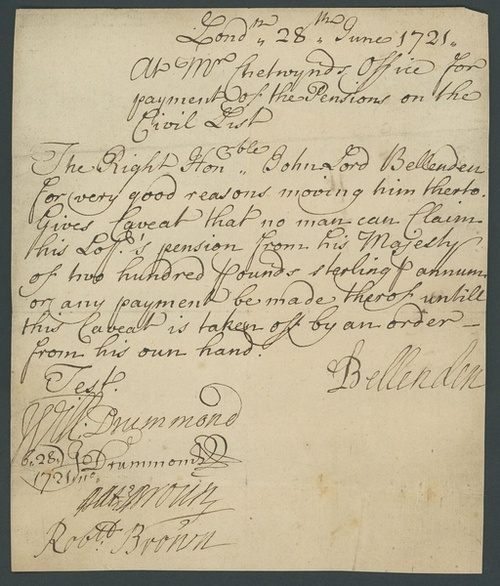 Londn 28th June 1721
At Mr Chetwynds Office for
payment of the Pensions on the
Civil List
The Right Honrble John Lord Bellenden
for very good reasons moving him therto.
Gives Caveat that no man can Claim
this Lop's pension from his Majesty
of two hundred pounds sterling p annum
or any payment be made therof untill
this Caveat is taken off by an order
from his oun hand.
Bellenden
Test.
Will: Drummond
28 Drummond
1721
Robtt Broun